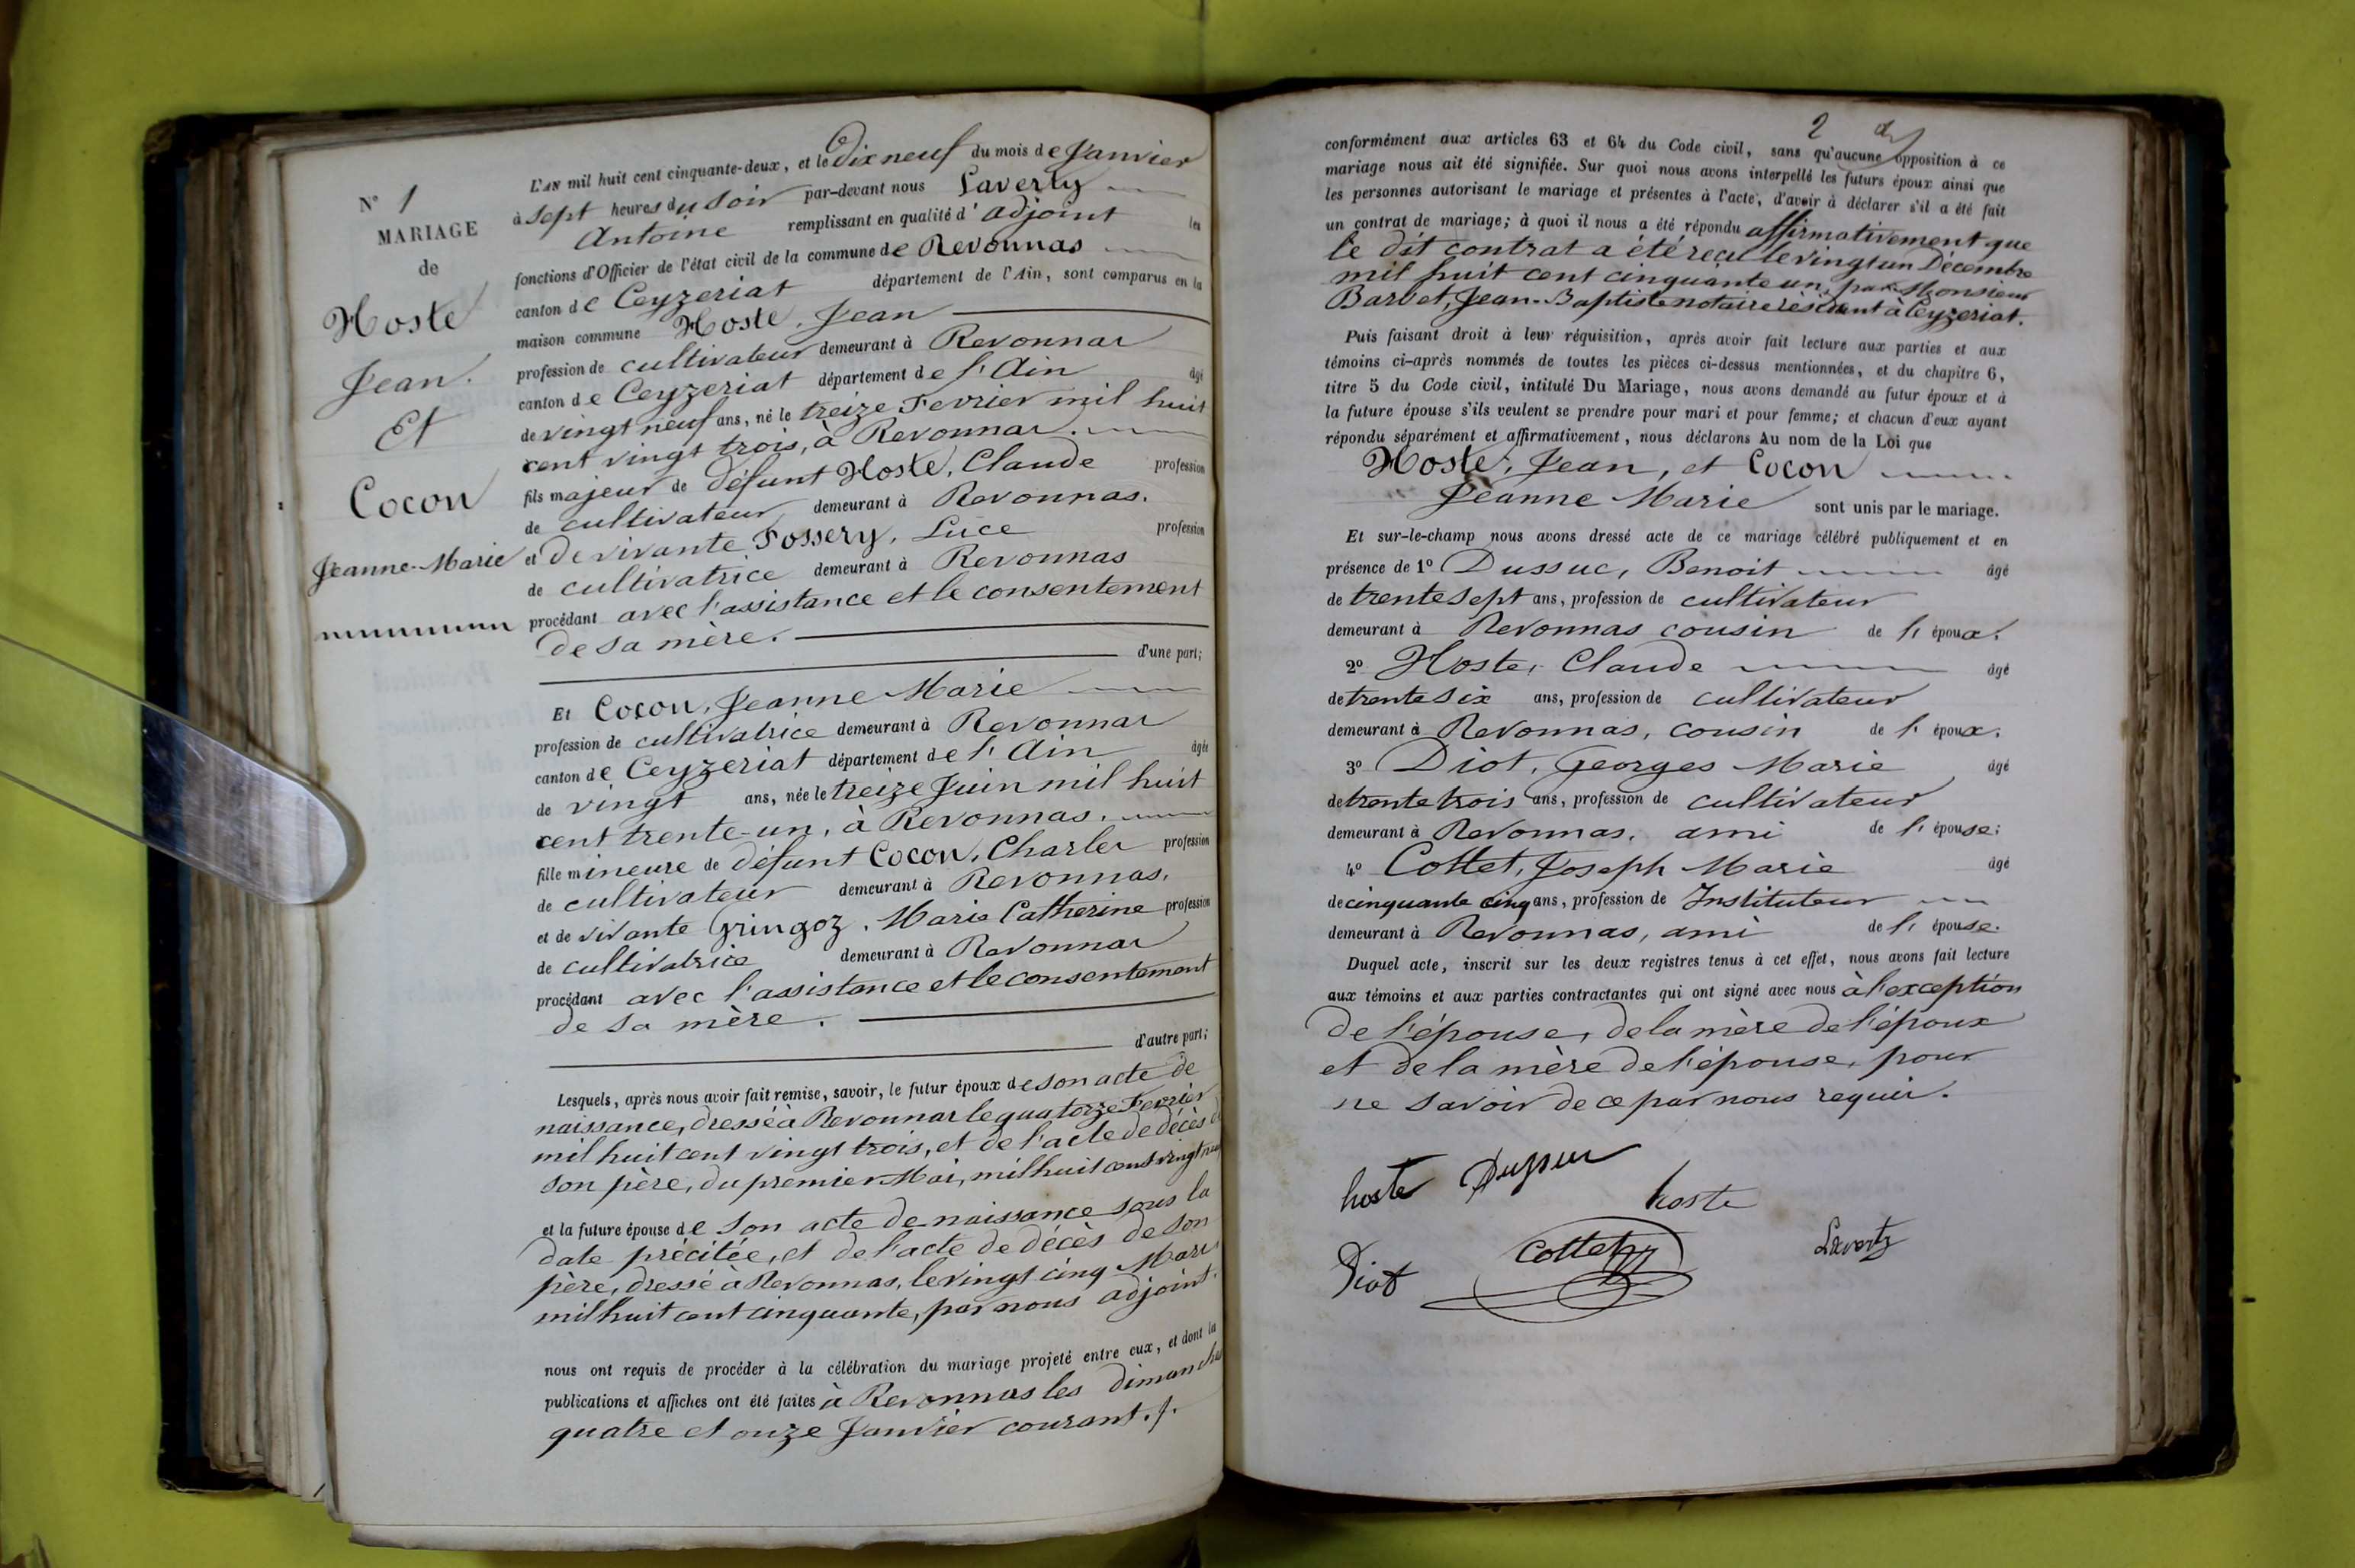 N° 1
MARIAGE
de
Hoste
Jean.
Et
Cocon
Jeanne-Marie
L'AN mil huit cent cinquante-deux, et le Dix neuf du mois de Janvier
à sept heures du soir par-devant nous
Antoine remplissant en qualité d'adjoint les
fonctions d'Officier de l'état civil de la commune de Revonnas
canton de Ceyzeriat département de l'Ain, sont comparus en la
maison commune Hoste, Jean
profession de cultivateur demeurant à Revonnas
canton de Ceyzeriat département de l'Ain âgé
de vingt neuf ans, né le treize Fevrier mil huit
cent vingt trois, à Revonnas.
fils majeur de défunt Hoste, Claude profession
de cultivateur demeurant à Revonnas.
et de vivante Fossery, Luce profession
de cultivatrice demeurant à Revonnas
procédant avec l'assistance et le consentement
de sa mère.
d'une part;
Et Cocon, Jeanne Marie
profession de cultivatrice demeurant à Revonnas
canton de Ceyzeriat département de l'Ain âgée
de vingt ans, née le treize Juin mil huit
cent trente-un, à Revonnas.
fille mineure de défunt Cocon, Charles profession
de cultivateur demeurant à Revonnas.
et de vivante Gringoz, Marie Catherine profession
de cultivatrice demeurant à Revonnas
procédant avec l'assistance et le consentement
de sa mère.
d'autre part;
Lesquels, après nous avoir fait remise, savoir, le futur époux de son acte de
naissance, dressé à Revonnas le quatorze Fevrier
mil huit cent vingt trois, et de l'acte de décès de
son père, du premier Mai, mil huit cent vingt
et la future épouse de son acte de naissance sous la
date précitée, et de l'acte de décès de son
père, dressé à Revonnas, le vingt cinq Mars
mil huit cent cinquante, par nous adjoint.
nous ont requis de procéder à la célébration du mariage projeté entre eux, et dont la
publications et affiches ont été faites à Revonnas les dimanches
quatre et onze Janvier courant.
2
conformément aux articles 63 et 64 du Code civil, sans qu'aucune opposition à ce
mariage nous ait été signifiée. Sur quoi nous avons interpellé les futurs époux ainsi que
les personnes autorisant le mariage et présentes à l'acte, d'avoir à déclarer s'il a été fait
un contrat de mariage; à quoi il nous a été répondu affirmativement que
le dit contrat a été reçu le vingt un Décembre
mil huit cent cinquante un, par Monsieur
Barbet, Jean-Baptiste notaire résidant à Ceyzeriat.
Puis faisant droit à leur réquisition, après avoir fait lecture aux parties et aux
témoins ci-après nommés de toutes les pièces ci-dessus mentionnées, et du chapitre 6,
titre 5 du Code civil, intitulé Du Mariage, nous avons demandé au futur époux et à
la future épouse s'ils veulent se prendre pour mari et pour femme; et chacun d'eux ayant
répondu séparément et affirmativement, nous déclarons Au nom de la Loi que
Hoste, Jean, et Cocon
Jeanne Marie sont unis par le mariage.
Et sur-le-champ nous avons dressé acte de ce mariage célébré publiquement et en
présence de 1° Dussuc, Benoit âgé
de trente sept ans, profession de cultivateur
demeurant à Revonnas cousin de l'époux.
2° Hoste, Claude âgé
de trente six ans, profession de cultivateur
demeurant à Revonnas, cousin de l'époux.
3° Diot, Georges Marie âgé
de trente trois ans, profession de cultivateur
demeurant à Revonnas, ami de l'épouse;
4° Cottet, Joseph Marie âgé
de cinquante cinq ans, profession de Instituteur
demeurant à Revonnas, ami de l'épouse.
Duquel acte, inscrit sur les deux registres tenus à cet effet, nous avons fait lecture
aux témoins et aux parties contractantes qui ont signé avec nous à l'exception
de l'épouse, de la mère de l'époux
et de la mère de l'épouse, pour
ne savoir de ce par nous requis.
hoste Dussuc
hoste
Diot Cottet